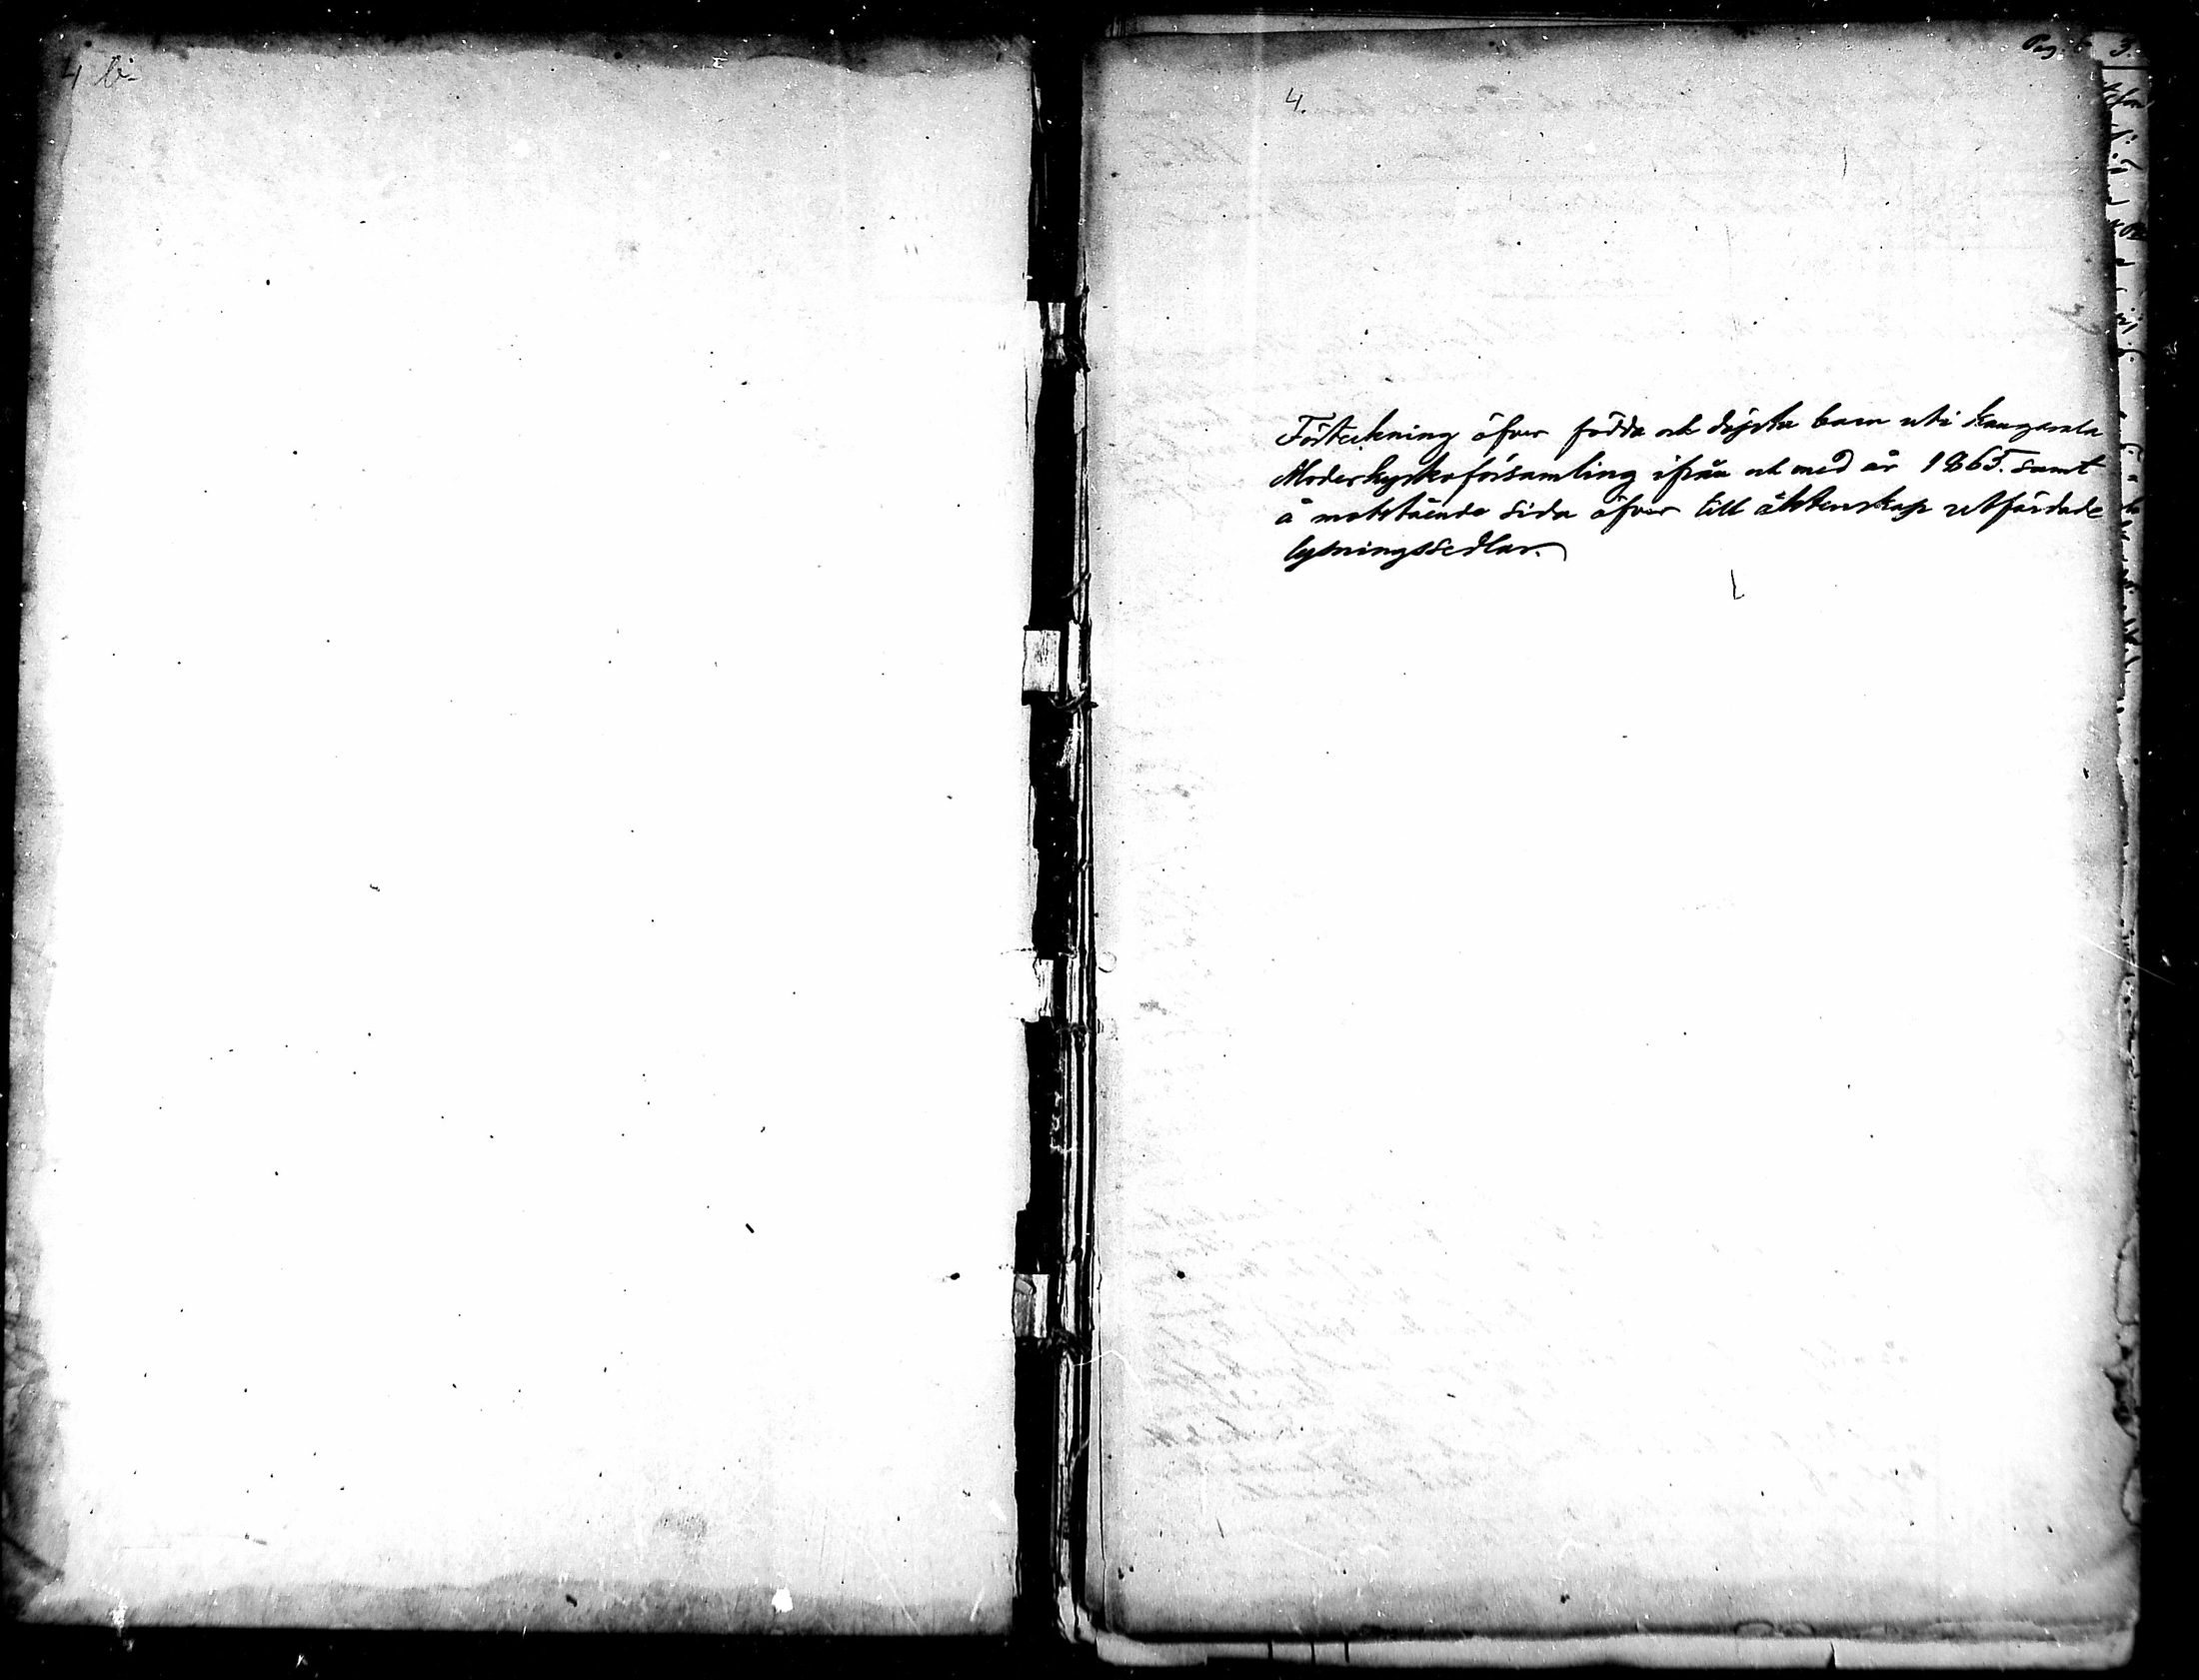 4 b.
4.
Pag. 6
Förteckning öfver födda och döpta barn uti Kangasala
Moderkyrkoförsamling ifrån och med år 1865. samt
å motstående sida öfver till äktenskap utfärdade
lysningssedlar.